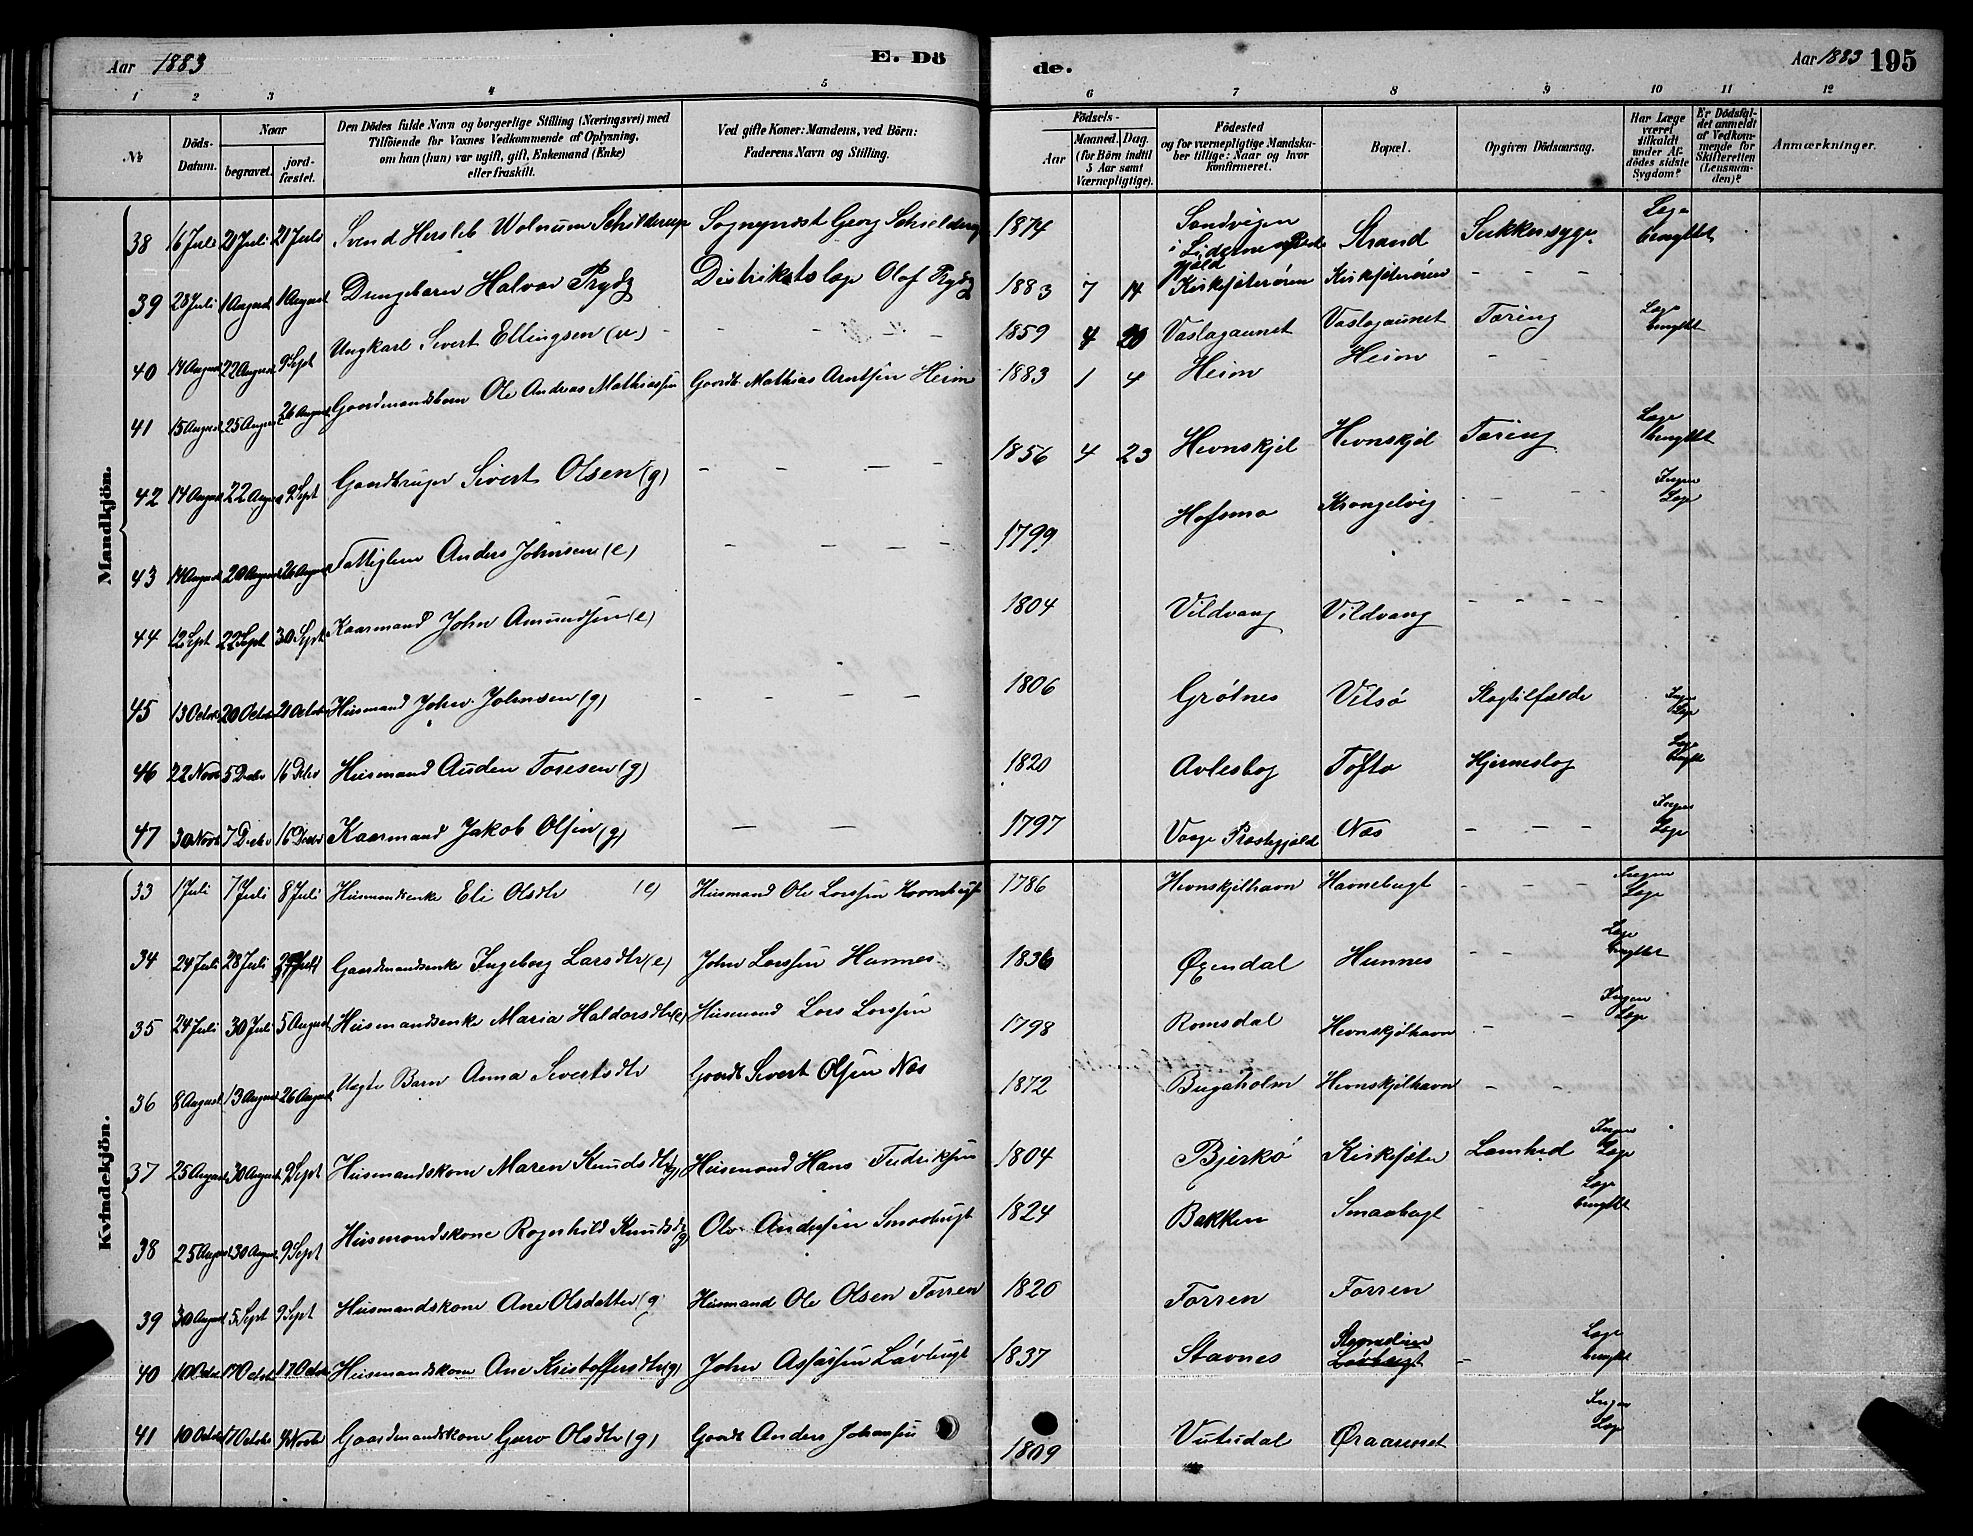 Aar 1883
E. Dö
de.
Aar 1883 195
1 2 3 4 5 6 7 8 9 10 11 12
№
Döds-Datum.
Naar
begravet.
jord-fæstet.
Den Dödes fulde Navn og borgerlige Stilling (Næringsvei) med
Tilföiende for Voxnes Vedkommende af Oplysning,
om han (hun) var ugift, gift, Enkemand (Enke)
eller fraskilt.
Ved gifte Koner: Mandens, ved Börn:
Faderens Navn og Stilling.
Födsels-
Aar
Maaned. Dag.
(for Börn indtil
5 Aar samt
Værnepligtige).
Födested
og for værnepligtige Mandska-
ber tillige: Naar og hvor
konfirmeret.
Bopæl.
Opgiven Dödsaarsag.
Har Læge
været
tilkaldt
under Af-
dödes sidste
Sygdom?
Er Dödsfal-
det anmeldt
af Vedkom-
mende for
Skifteretten
(Lensman-
den)?
Anmærkninger.
Mandkjön.
38 16 Juli 21 Juli 21 Juli Svend Hersleb Wolnum Schilderup Sogneprest Georg Schielderup 1874 Sandvigen i Strand Sukkersyge Læge benyttet
39 1 August 1 August Drengebarn Halvor Prydz Distriktslæge Olaf Prydz 1883 7 14 Kirksæterøren Kirksæterøren – – –
40 14 August 22 August 9 Sept Ungkarl Sivert Ellingsen (u) – – – 1859 4 20 Vaslagaunet Vaslagaunet Tæring Læge benyttet
41 15 August 25 August 26 August Gaardmandsbarn Ole Andreas Mathiassen Gaardb. Mathias Arntsen Heim 1883 1 4 Heim Heim – –
42 14 August 22 August 9 Sept Gaardbruger Sivert Olsen (g) – – – – 1856 4 23 Hevnskjel Hevnskjel Tæring Læge benyttet
43 14 August 20 August 26 August Fattiglem Anders Johnsen (e) – – – – 1799 Hofsmo Krongelvig – – Ingen Læge
44 12 Sept 22 Sept 30 Sept Kaarmand John Amundsen (e) 1804 Vildvang Vildvang – – – –
45 13 Octbr 20 Octbr 21 Octbr Husmand John Johnsen (g) – – – – – 1806 Grötnes Vilsö Slagtilfælde Ingen Læge
46 22 Novb 5 Decbr 16 Decbr Husmand Auden Toresen (g) 1820 Avleshog Tofto Hjerneslag Læge benyttet
47 30 Novb 7 Decbr 16 Decbr Kaarmand Jakob Olsen (g) – – 1797 Vaage Præstegjæld Næs – – – Ingen Læge
Kvindekjön.
33 1 Juli 7 Juli 8 Juli Husmandsenke Eli Olsdtr (e) Husmand Ole Larssen Havnebugt 1786 Hevnskjelhavn Havnebugt – – – Ingen Læge
34 24 Juli 28 Juli 29 Juli Gaardmandsenke Ingeborg Larsdtr (e) John Larssen Hamnes 1836 Øxendal Hamnes – – Læge benyttet
35 24 Juli 30 Juli 5 August Husmandsenke Maria Haldorsdtr (e) Husmand Lars Larssen 1798 Romsdal Hevnskjelhavn – – Ingen Læge
36 8 August 13 August 26 August Uægte Barn Anna Sivertsdtr Gaardb Sivert Olsen Næs 1872 Bugaholm Hevnskjelhavn – –
37 25 August 30 August 9 Sept Husmandskone Maren Knudsdtr (g) Husmand Hans Fredriksen 1804 Bjerkö Kirksæter Lamhed Ingen Læge
38 25 August 30 August 9 Sept Husmandskone Ragnhild Knudsdtr (g) Ole Andersen Smaabugt 1824 Bakken Smaabugt – Læge benyttet
39 30 August 5 Sept 9 Sept Husmandskone Ane Olsdatter (g) Husmand Ole Olsen Torren 1820 Torren Torren
40 10 Octbr 17 Octbr 17 Octbr Husmandskone Ane Kristoffersdtr (g) John Assassen Løvbugt 1837 Stavnes Løvbugt – Læge benyttet
41 10 Octbr 17 Octbr 4 Novb Gaardmandskone Guro Olsdtr (g) Gaardb Anders Johansen 1809 Vutudal Øraaunet Ingen Læge